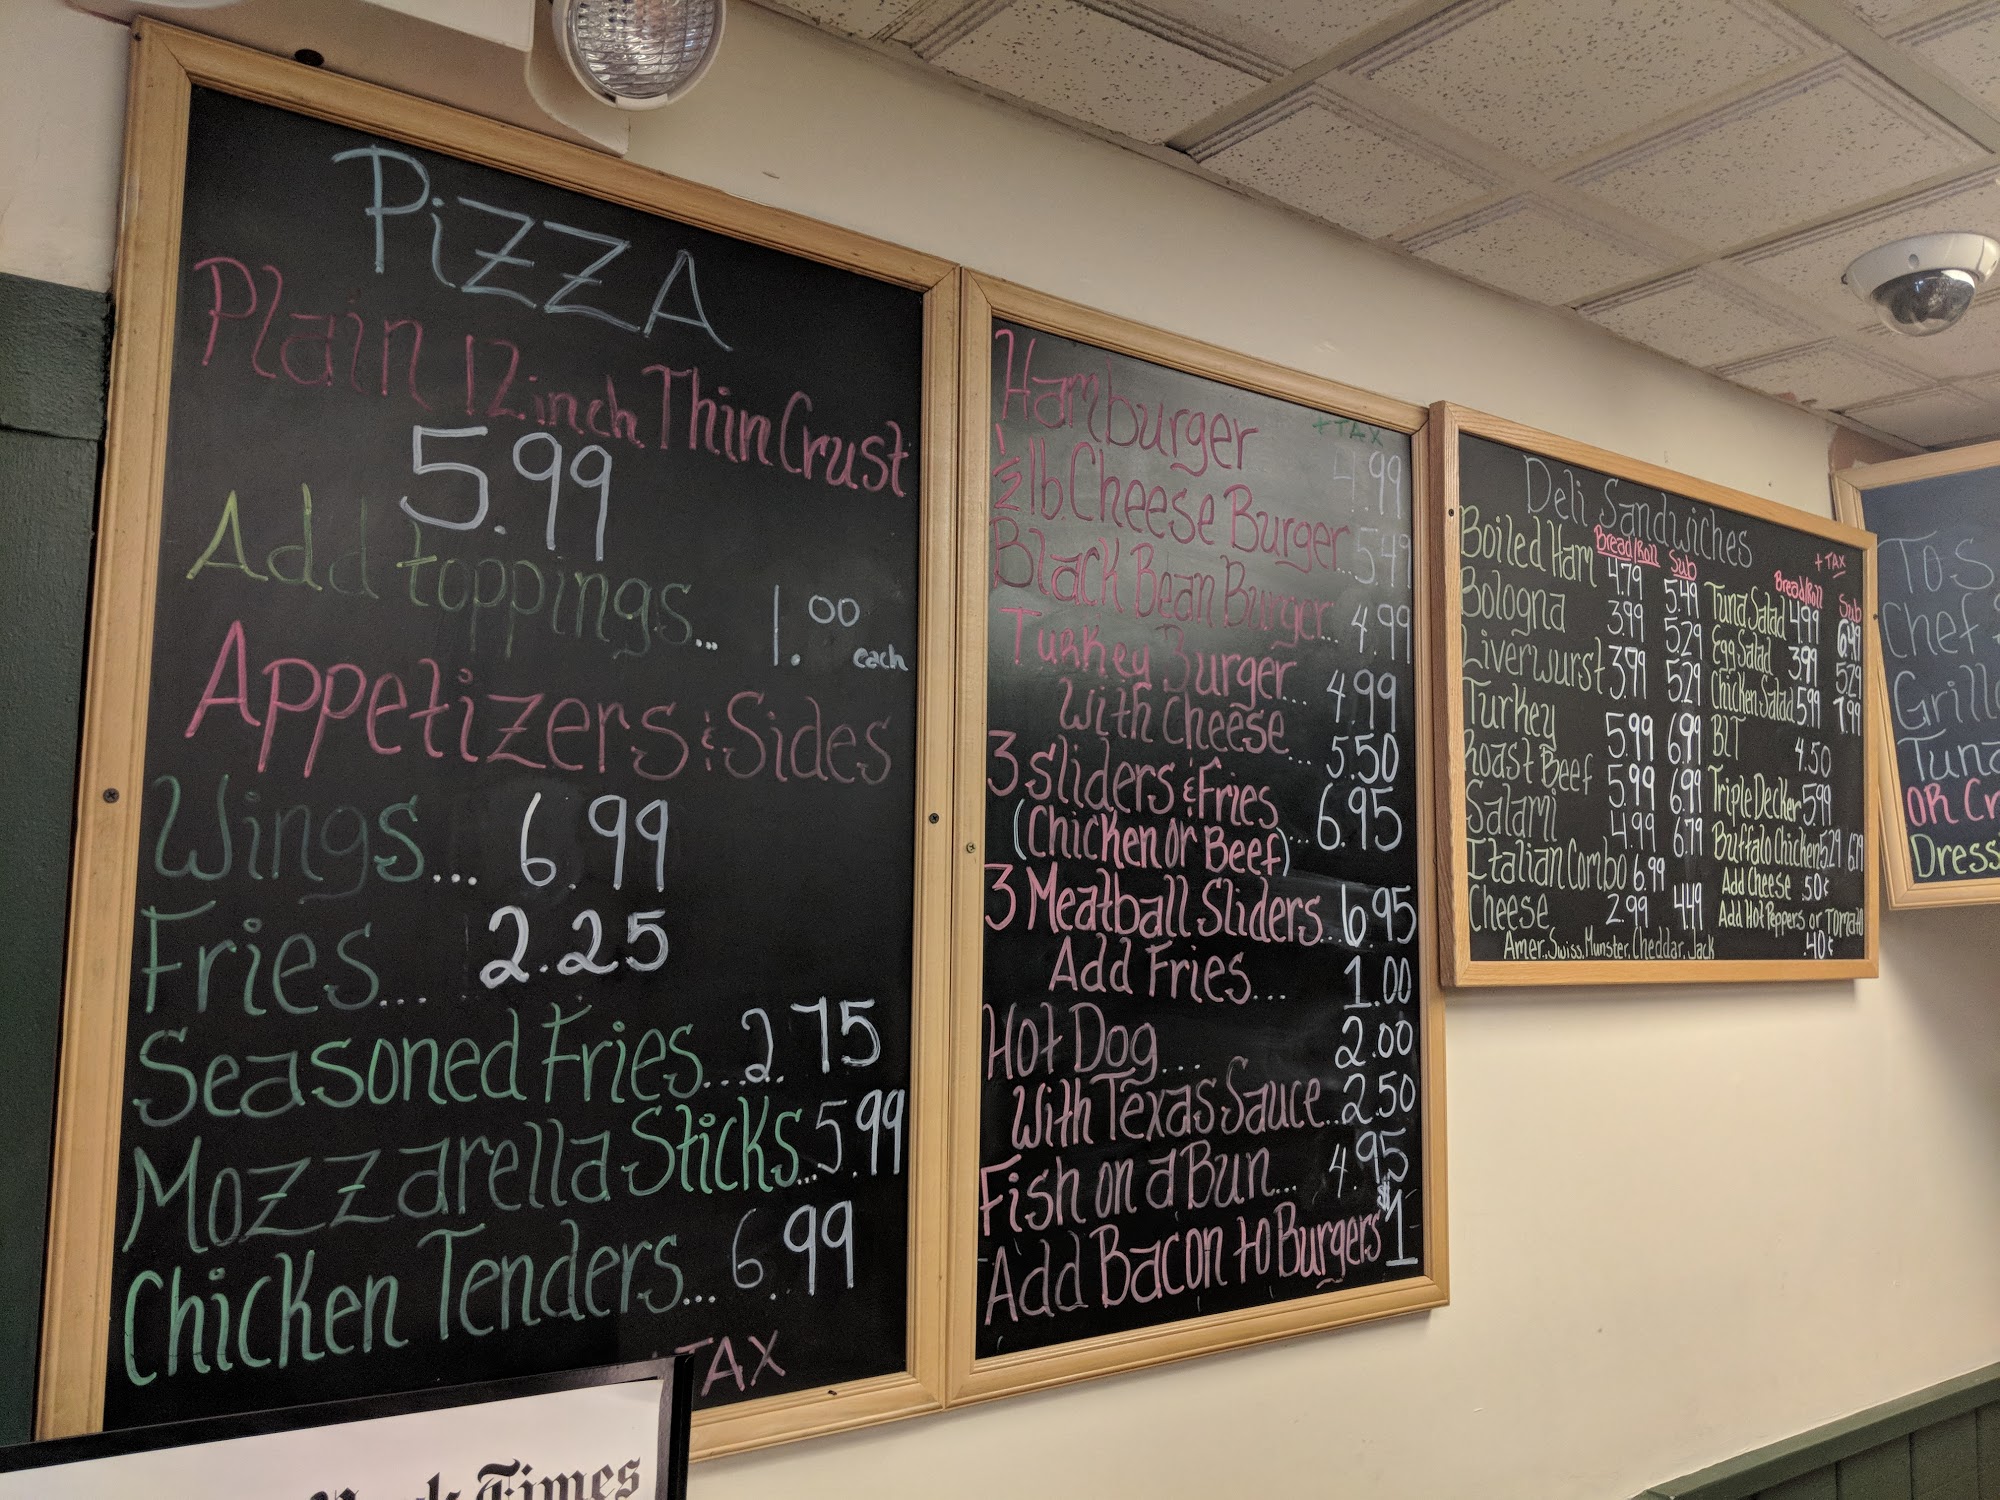 PiZZA
Plain 12 inch Thin Crust
5.99
Add toppings... 1.00 each
Appetizers & Sides
Wings... 6.99
Fries... 2.25
Seasoned Fries...2.75
Mozzarella Sticks...5.99
Chicken Tenders... 6.99
TAX
+ TAX
Hamburger 4.99
1/2 lb Cheese Burger...5.49
Black Bean Burger... 4.99
Turkey Burger... 4.99
With Cheese... 5.50
3 sliders & Fries
(Chicken or Beef)... 6.95
3 Meatball Sliders...6.95
Add Fries... 1.00
Hot Dog.... 2.00
With Texas Sauce...2.50
Fish on a Bun... 4.95
Add Bacon to Burgers 1
Deli Sandwiches
+ TAX
Bread/Roll Sub
Boiled Ham 4.79 5.49
Bologna 3.99 5.29
Liverwurst 3.79 5.29
Turkey 5.99 6.99
Roast Beef 5.99 6.99
Salami 4.99 6.79
Italian Combo 6.99
Cheese 2.99 4.49
Amer., Swiss, Munster, Cheddar, Jack
Bread/Roll Sub
Tuna Salad 4.99 6.49
Egg Salad 3.99 5.29
Chicken Salad 5.99 7.99
BLT 4.50
Triple Decker 5.99
Buffalo Chicken 5.29 6.79
Add Cheese .50¢
Add Hot Peppers or Tomato
.40¢
Chef
Tuna
OR Cr
Dress
Times